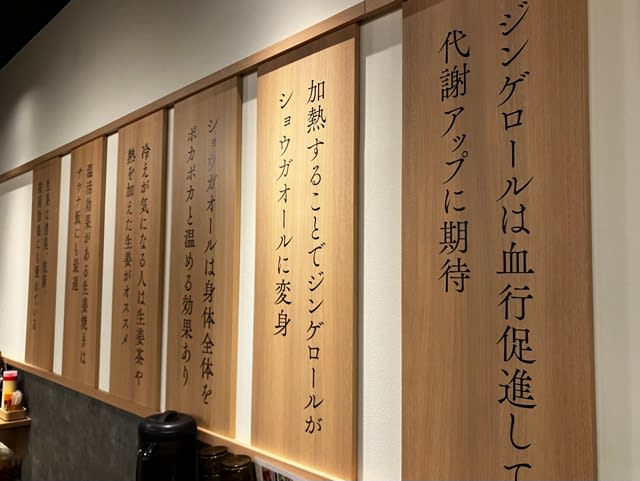 ジンゲロールは血行促進して
代謝アップに期待
加熱することでジンゲロールが
ショウガオールに変身
ショウガオールは身体全体を
ポカポカと温める効果あり
冷えが気になる人は生姜茶や
熱を加えた生姜がオススメ
温活効果がある生姜焼きは
サウナ飯にも最適
生姜は
殺菌効果にも優れている